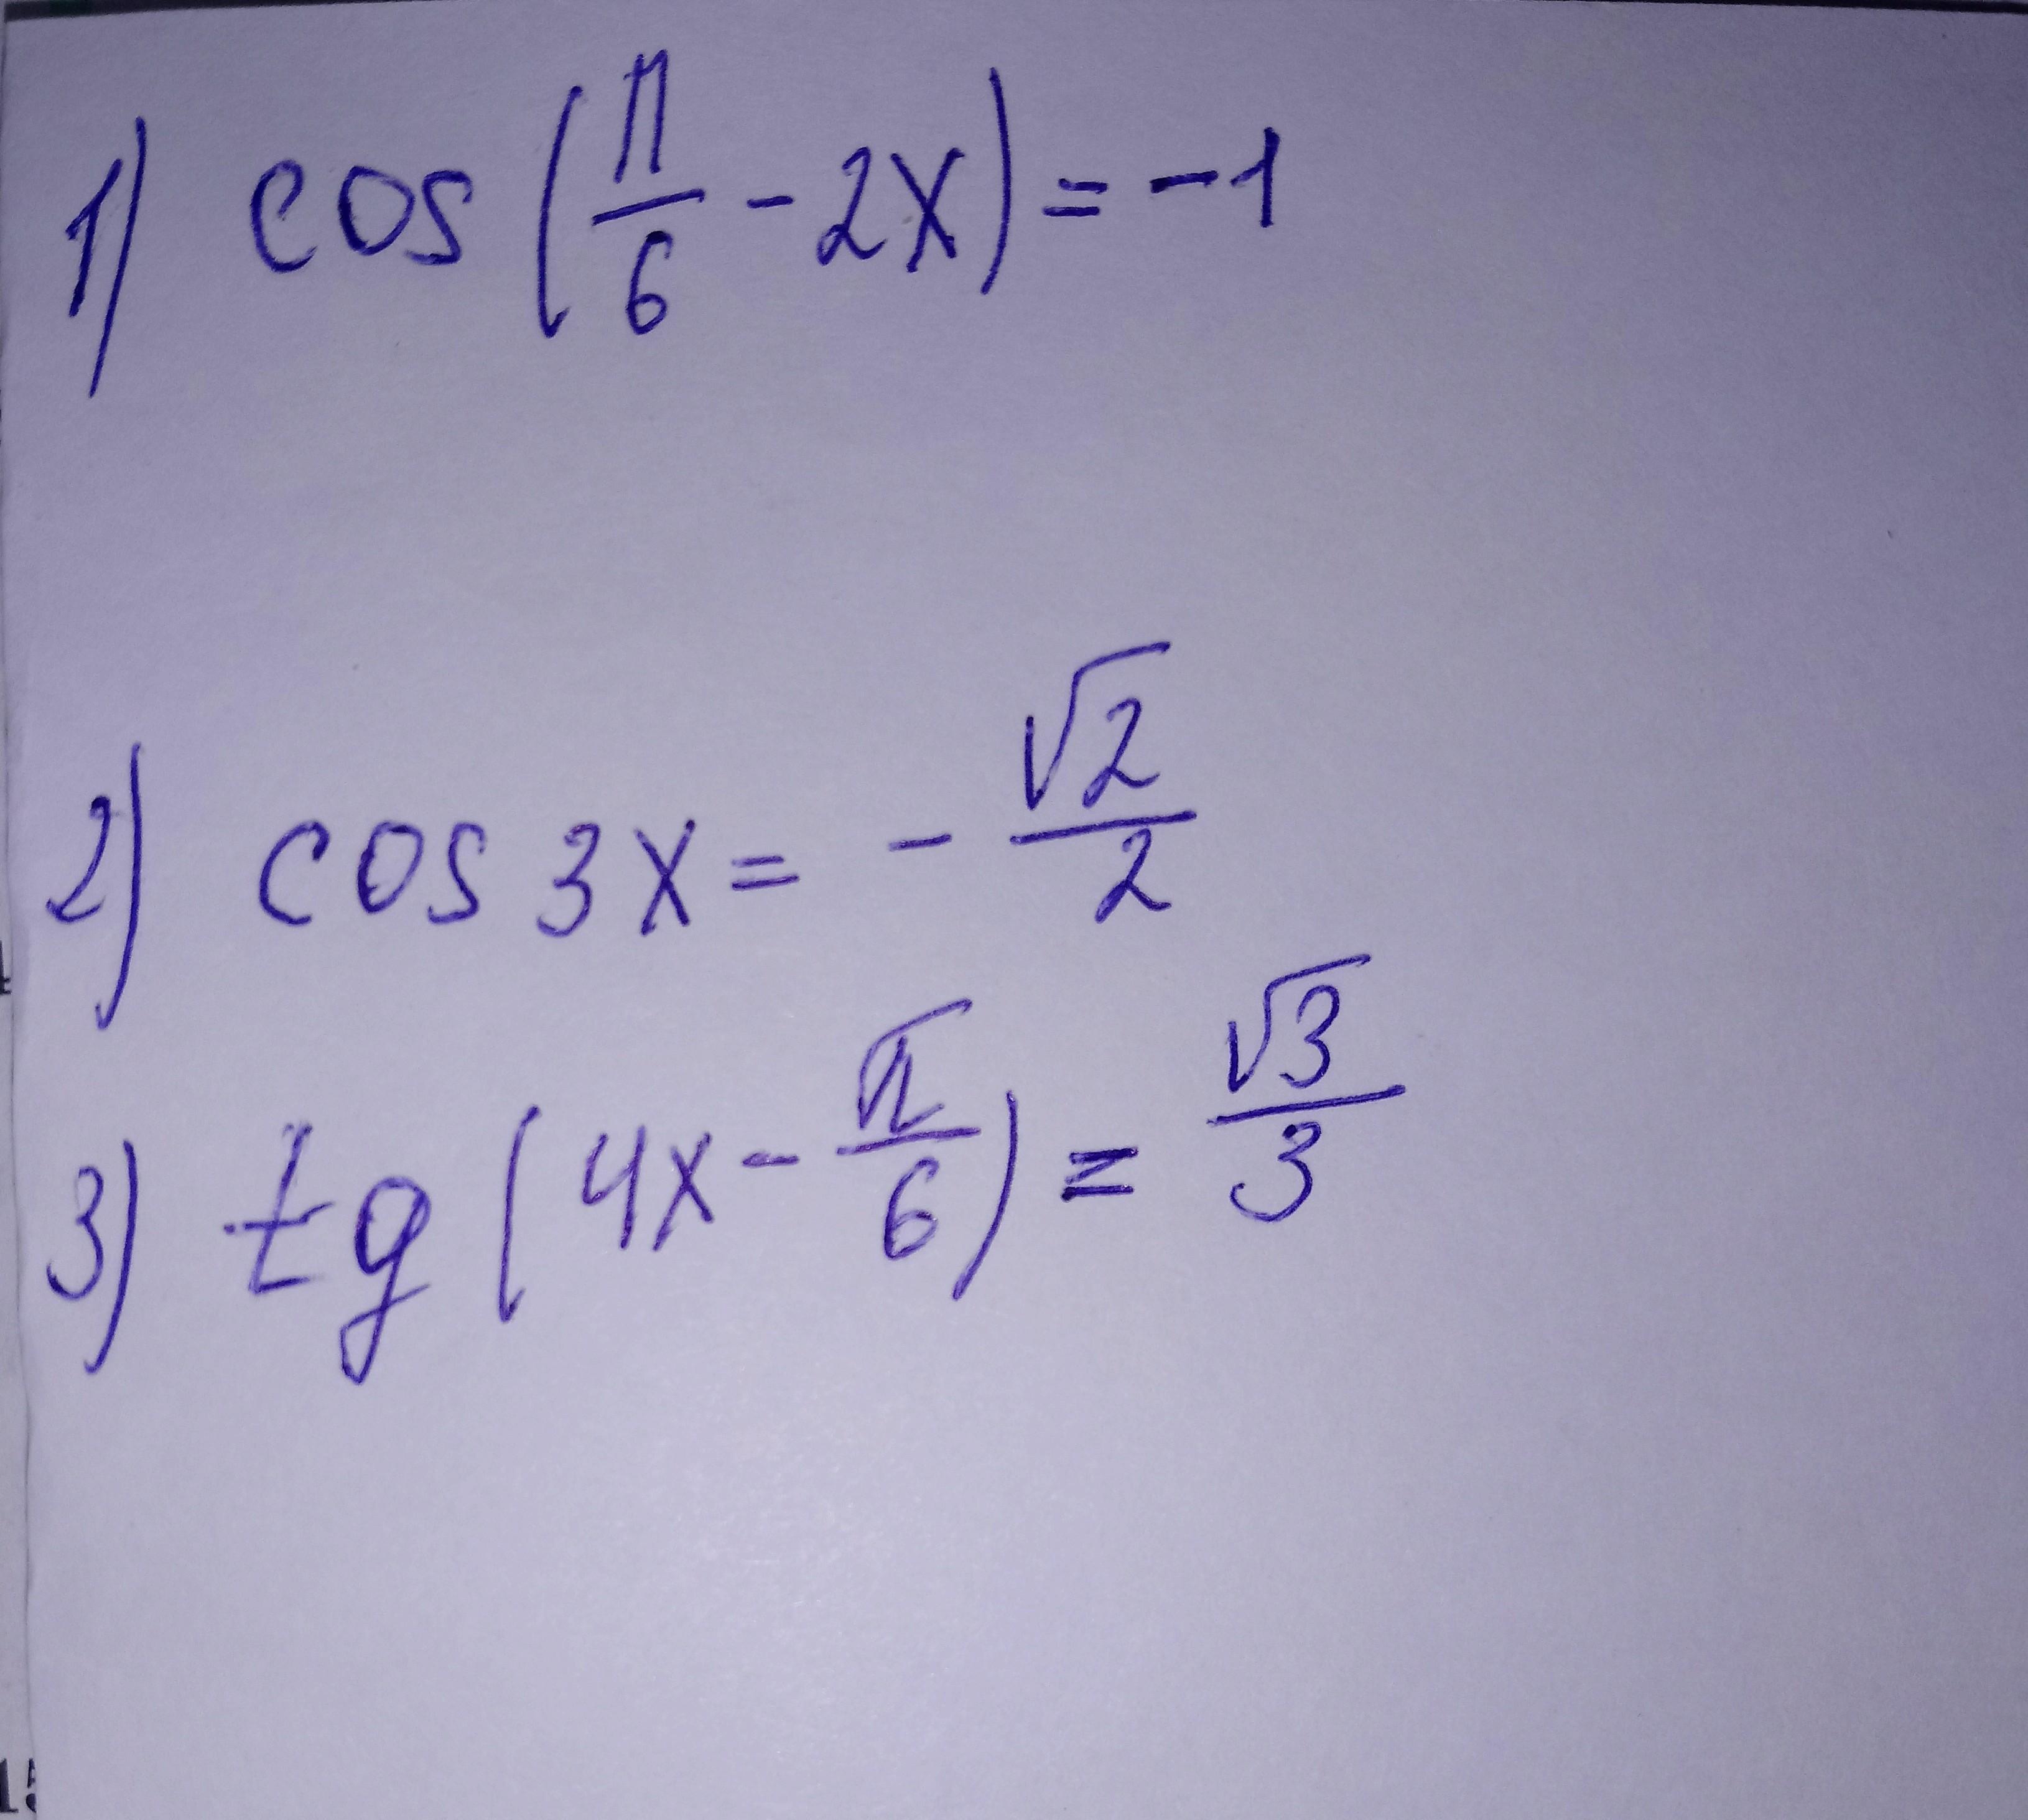 1) cos(π/6 - 2x) = -1
2) cos 3x = - √2/2
3) tg(4x - π/6) = √3/3